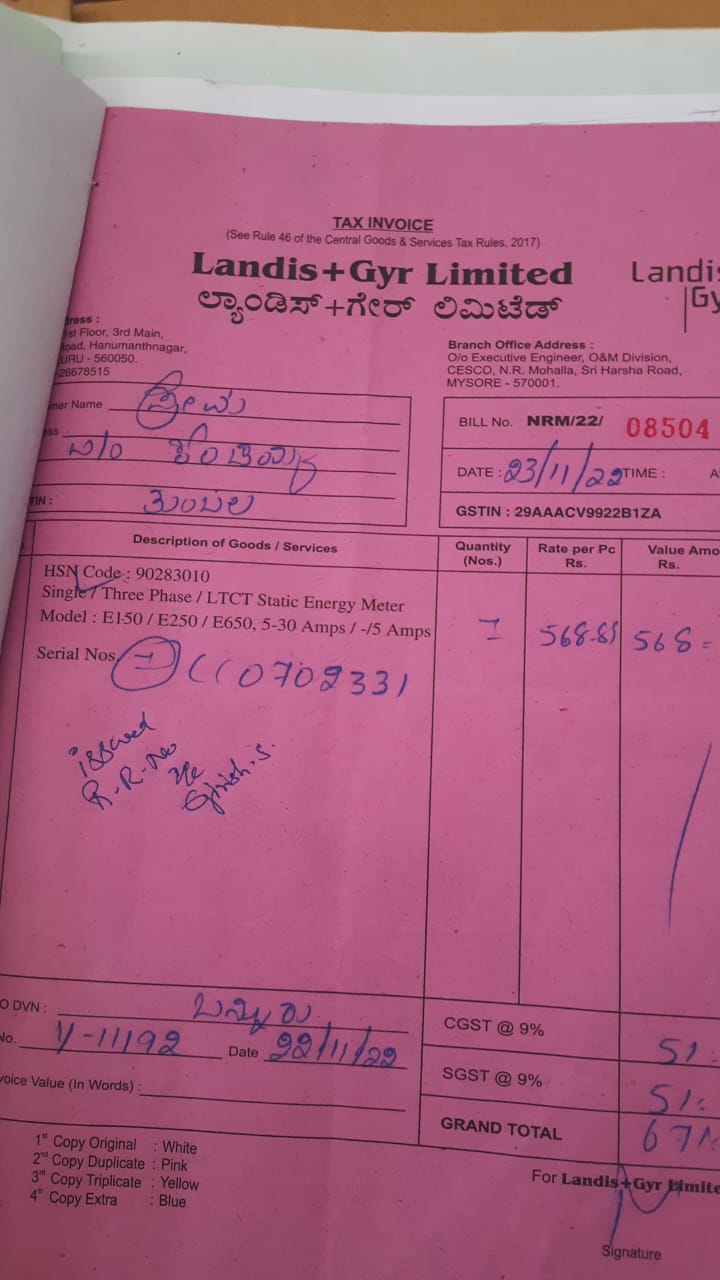 TAX INVOICE
(See Rule 46 of the Central Goods & Services Tax Rules, 2017)
Landis+Gyr Limited
ಲ್ಯಾಂಡಿಸ್+ಗೇರ್ ಲಿಮಿಟೆಡ್
Landis
Gy
ress :
st Floor, 3rd Main,
oad, Hanumanthnagar,
URU - 560050.
26678515
Branch Office Address :
O/o Executive Engineer, O&M Division,
CESCO, N.R. Mohalla, Sri Harsha Road,
MYSORE - 570001.
mer Name ಪ್ರೇಮ
ess
TIN :
BILL No. NRM/22/ 08504
DATE : 23/11/22 TIME : A
GSTIN : 29AAACV9922B1ZA
Description of Goods / Services
Quantity (Nos.)
Rate per Pc Rs.
Value Amo Rs.
HSN Code : 90283010
Single / Three Phase / LTCT Static Energy Meter
Model : E150 / E250 / E650, 5-30 Amps / -/5 Amps
1 568-81 568=
Serial Nos. CC0702331
issued
R-R-No
Girish.S.
O DVN : ಬನ್ನೂರು
No. Y-11192 Date 22/11/22
voice Value (In Words) :
CGST @ 9% 51
SGST @ 9% 51
GRAND TOTAL 671
1st Copy Original : White
2nd Copy Duplicate : Pink
3rd Copy Triplicate : Yellow
4th Copy Extra : Blue
For Landis+Gyr Limite
Signature